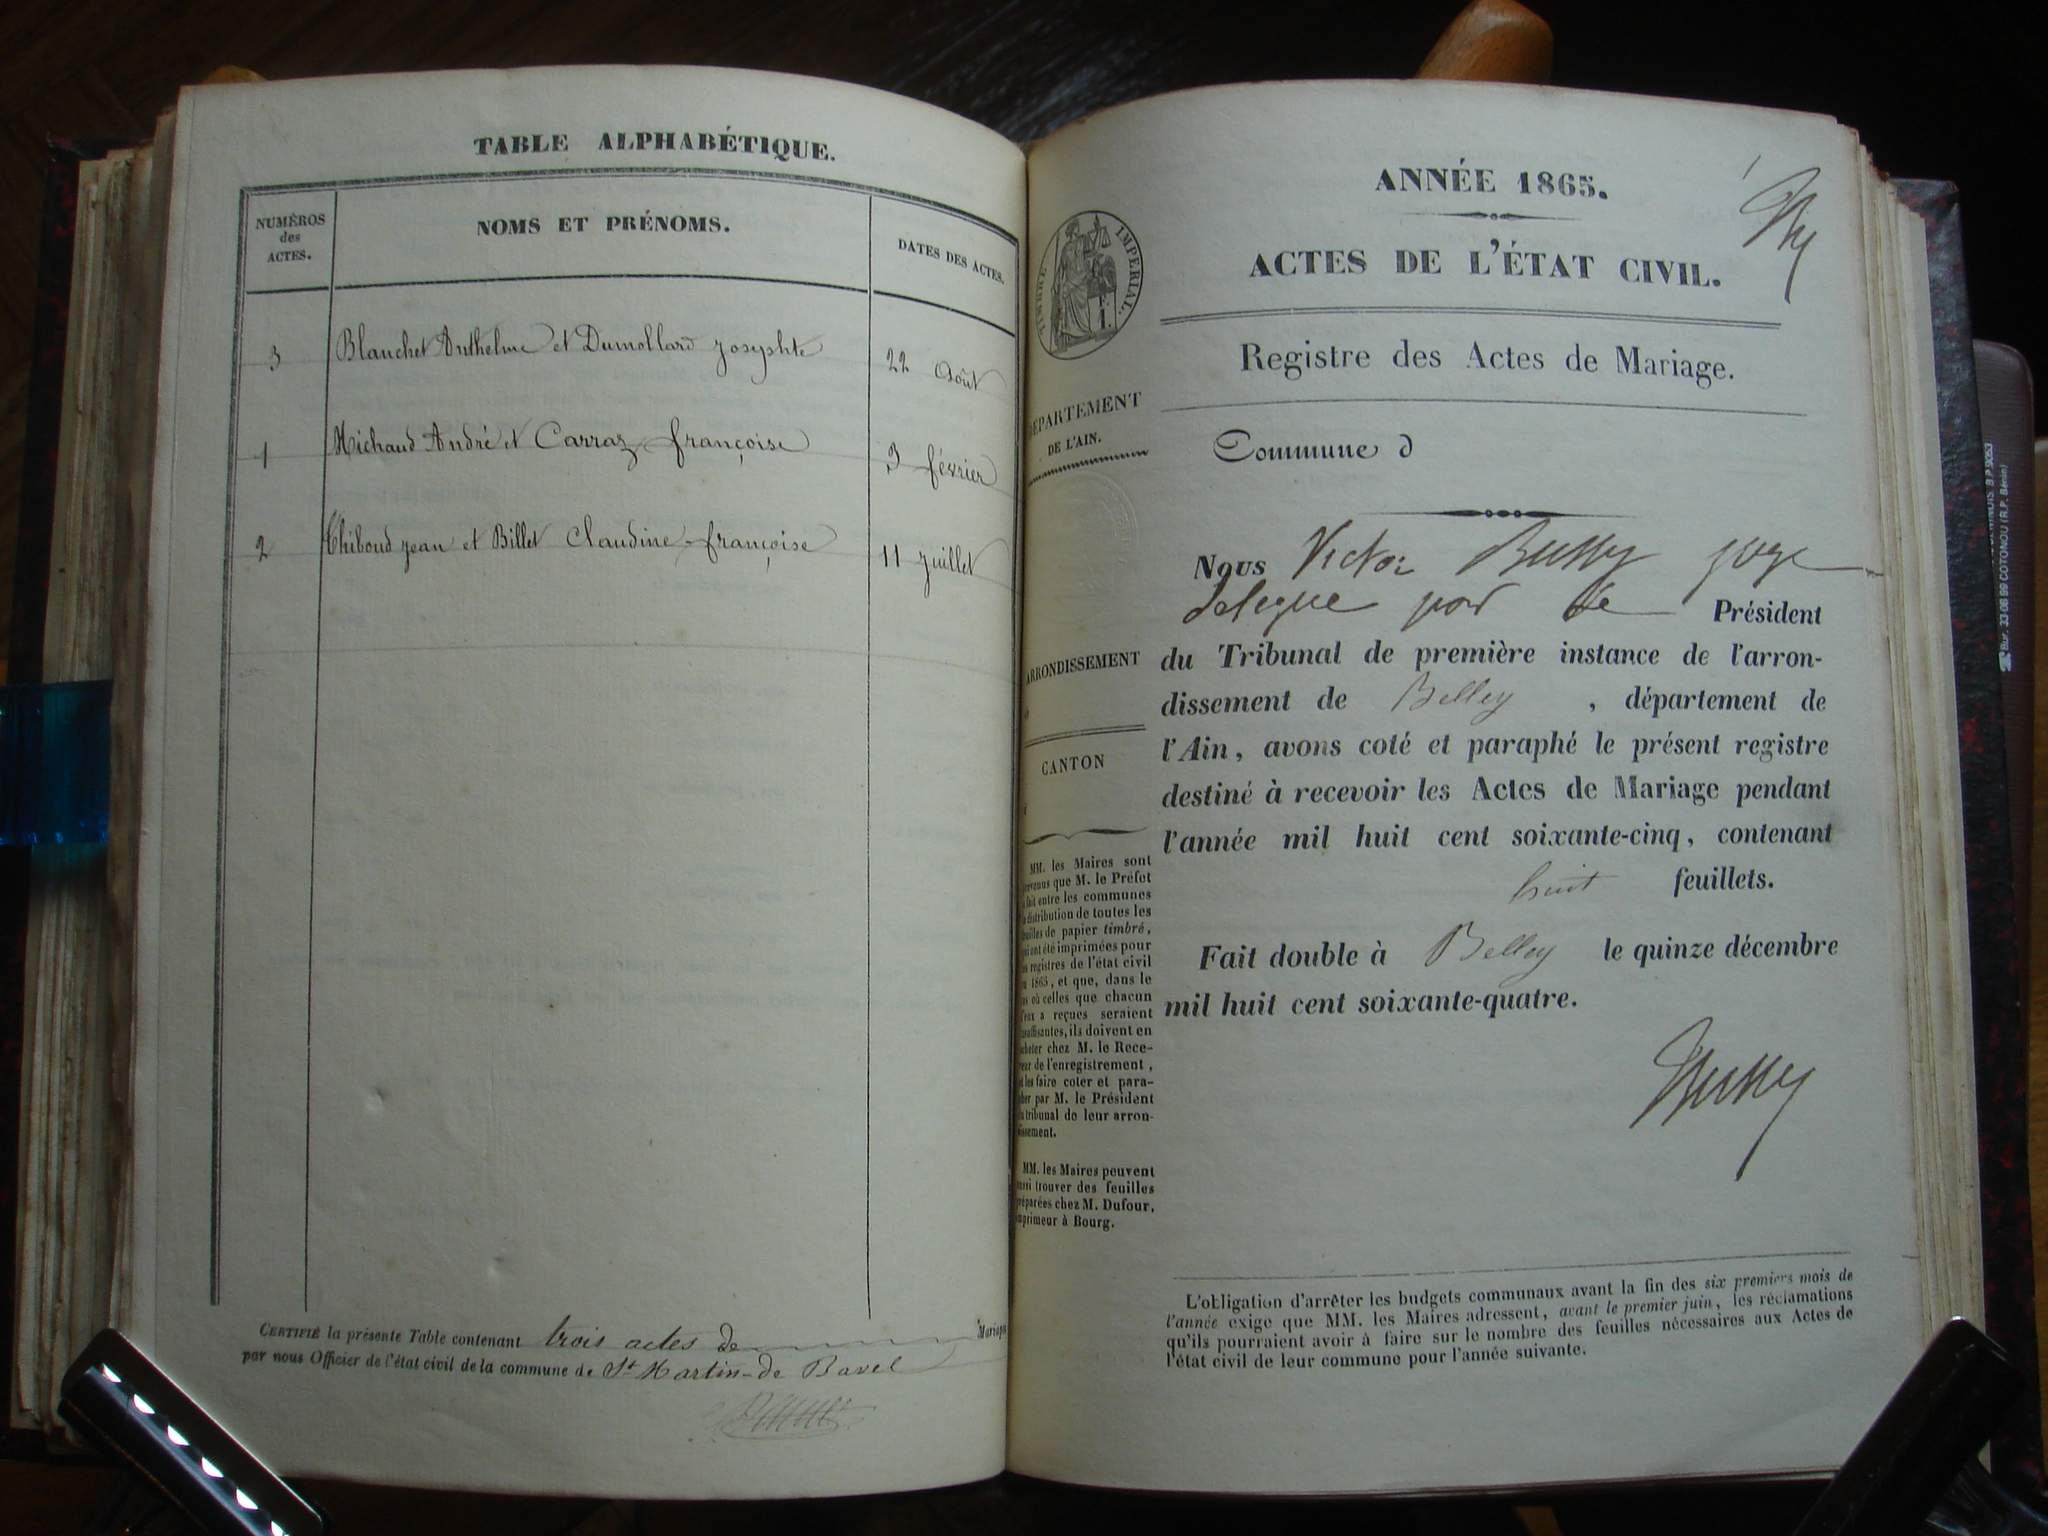 TABLE ALPHABÉTIQUE.
NUMÉROS
des
ACTES.
NOMS ET PRÉNOMS.
DATES DES ACTES.
3 Blanchet Anthelme et Dumollard Josephte 22 Août
1 Michaud André et Carraz françoise 3 février
2 Thiboud Jean et Billet Claudine-françoise 11 Juillet
CERTIFIÉ la présente Table contenant trois actes de Mariages
par nous Officier de l'état civil de la commune de St Martin-de Bavel
TIMBRE IMPERIAL.
1.
DÉPARTEMENT
DE L'AIN.
ARRONDISSEMENT
CANTON
MM. les Maires sont
prévenus que M. le Préfet
a fait entre les communes
la distribution de toutes les
feuilles de papier timbré,
qui ont été imprimées pour
les registres de l'état civil
de 1865, et que, dans le
cas où celles que chacun
d'eux a reçues seraient
insuffisantes, ils doivent en
acheter chez M. le Rece-
veur de l'enregistrement,
et les faire coter et para-
pher par M. le Président
du tribunal de leur arron-
dissement.
MM. les Maires peuvent
aussi trouver des feuilles
préparées chez M. Dufour,
imprimeur à Bourg.
ANNÉE 1865.
ACTES DE L'ÉTAT CIVIL.
Registre des Actes de Mariage.
Commune d
Nous Victor Bussy juge
delegue par le Président
du Tribunal de première instance de l'arron-
dissement de Belley, département de
l'Ain, avons coté et paraphé le présent registre
destiné à recevoir les Actes de Mariage pendant
l'année mil huit cent soixante-cinq, contenant
huit feuillets.
Fait double à Belley le quinze décembre
mil huit cent soixante-quatre.
Bussy
L'obligation d'arrêter les budgets communaux avant la fin des six premiers mois de
l'année exige que MM. les Maires adressent, avant le premier juin, les réclamations
qu'ils pourraient avoir à faire sur le nombre des feuilles nécessaires aux Actes de
l'état civil de leur commune pour l'année suivante.
B.P. 9053
Bur. 33 08 99 COTONOU (R.P. Bénin)